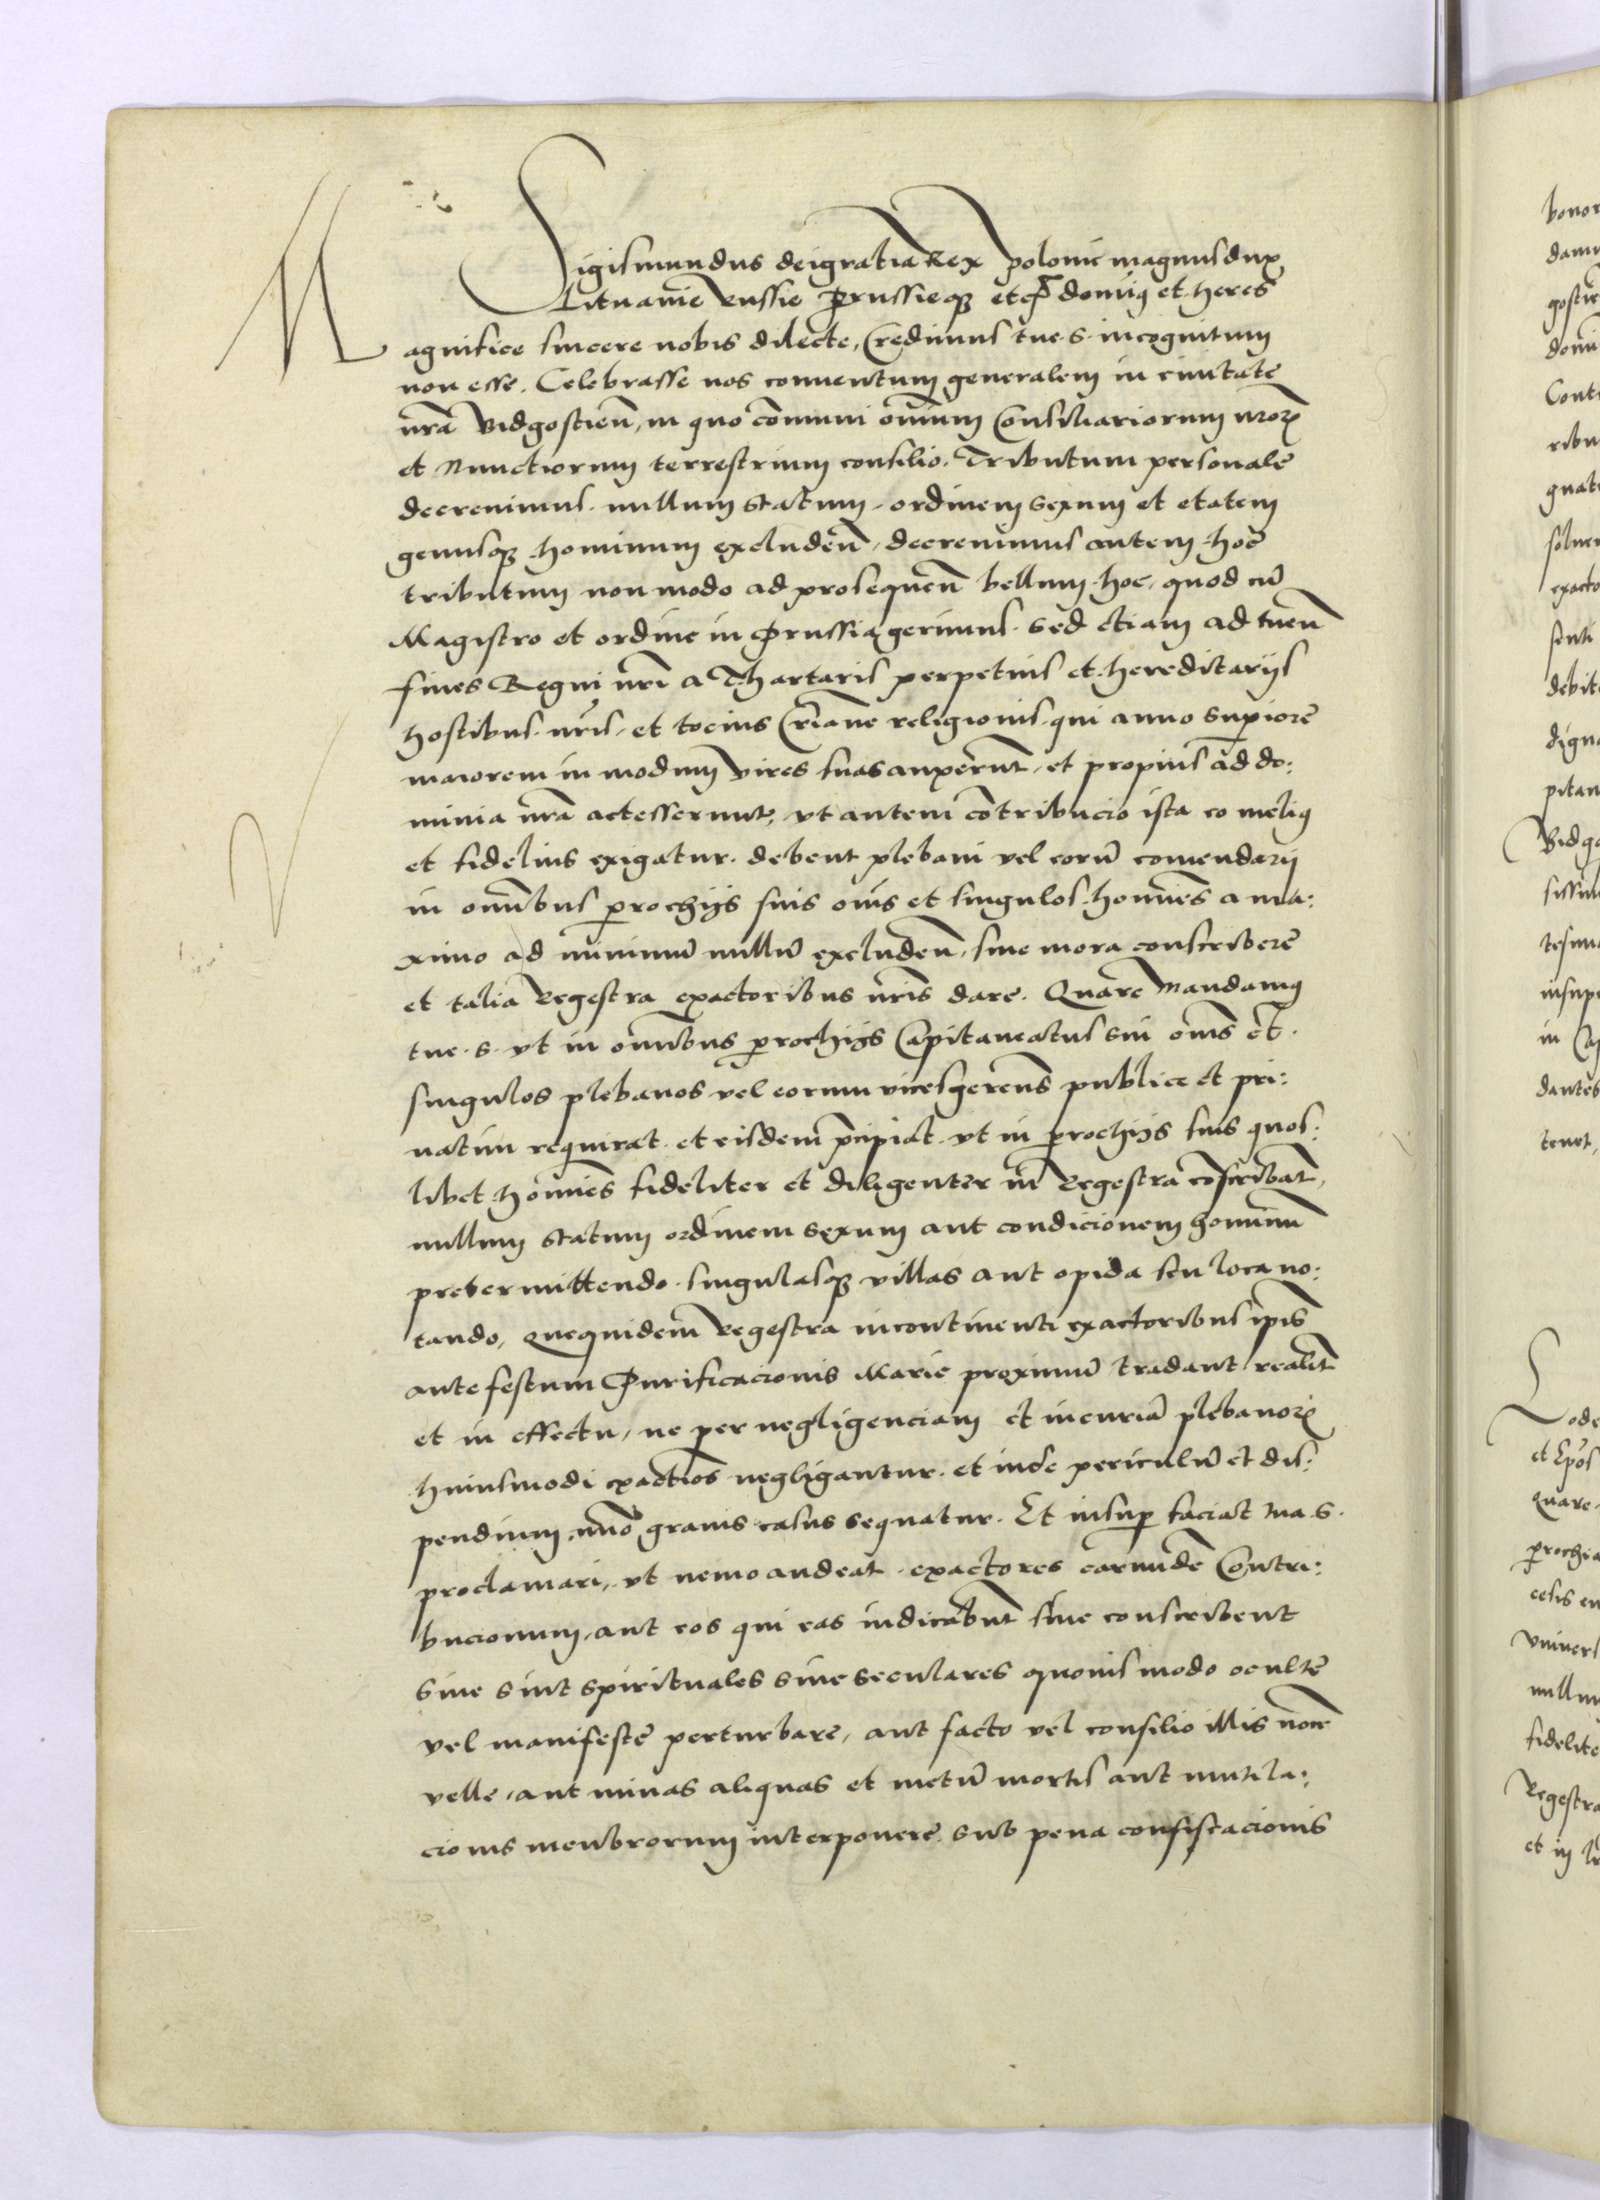 Sigismundus dei gratia Rex polonie magnus dux
Lituanie Russie Prussieqȝ etc̃ domiꝰ et heres
Magnifice sincere nobis dilecte, Credimus tue .s. incognitum
non esse. Celebrasse nos conuentum generalem in ciuitate
nr̃a Bidgostien̄, in quo cōmuni omīum Consiliariorum nr̃oꝝ
et Nunctiorum terrestrium consilio. Tributum personale
decreuimus. nullum statum. ordinem sexum et etatem
genusqȝ hominum excluden̄, decreuimus autem hoc
tributum non modo ad prosequen̄ bellum hoc, quod cū
Magistro et ordine in Prussia gerimus. Sed etiam ad tuen̄
fines Regni nr̃i a Thartaris perpetuis et hereditarijs
hostibus nr̃is, et tocius Cr̃iane religionis. qui anno suꝑiore
maiorem in modum vires suas auxerunt, et propius ad do:
minia nr̃a actesserunt, vt autem cōtribucio ista eo meliꝰ
et fidelius exigatur. debent plebani vel eorū comendarij
in om̄ibus ꝑrochijs suis om̄s et singulos homīes a ma:
ximo ad minimū nullū excluden̄, sine mora conscribere
et talia Regestra exactoribus nr̃is dare. Quare mandamꝰ
tue .s. vt in om̄ibus ꝑrochijs Capitaneatus sui om̄s et
singulos plebanos vel eorum vicesgerentes publice et pri:
uatim requirat. et eisdem p̄cipiat. vt in ꝑrochijs suis quos:
libet homīes fideliter et diligenter in Regestra cōscribat̄,
nullum statum ordinem sexum aut condicionem hominū
pretermittendo. singulasqȝ villas aut opida seu loca no:
tando, Quequidem Regestra incontinenti exactoribus ip̄is
ante festum Purificacionis Marie proximū tradant realit̄
et in effectu, ne per negligenciam et incuriā plebanoꝝ
huiusmodi exactiōs negligantur. et inde periculū et dis:
pendium, grauis casus sequatur. Et insuꝑ faciat tua .s.
proclamari, vt nemo audeat exactores earundē Contri:
bucionum, aut eos qui eas indicabūt siue conscribent
Siue sint spirituales siue seculares quouismodo oculte
vel manifeste perturbare, aut facto vel consilio illis noce
velle, aut minas aliquas et metū mortis aut mutila:
cionis membrorum interponere. sub pena confiscacionis